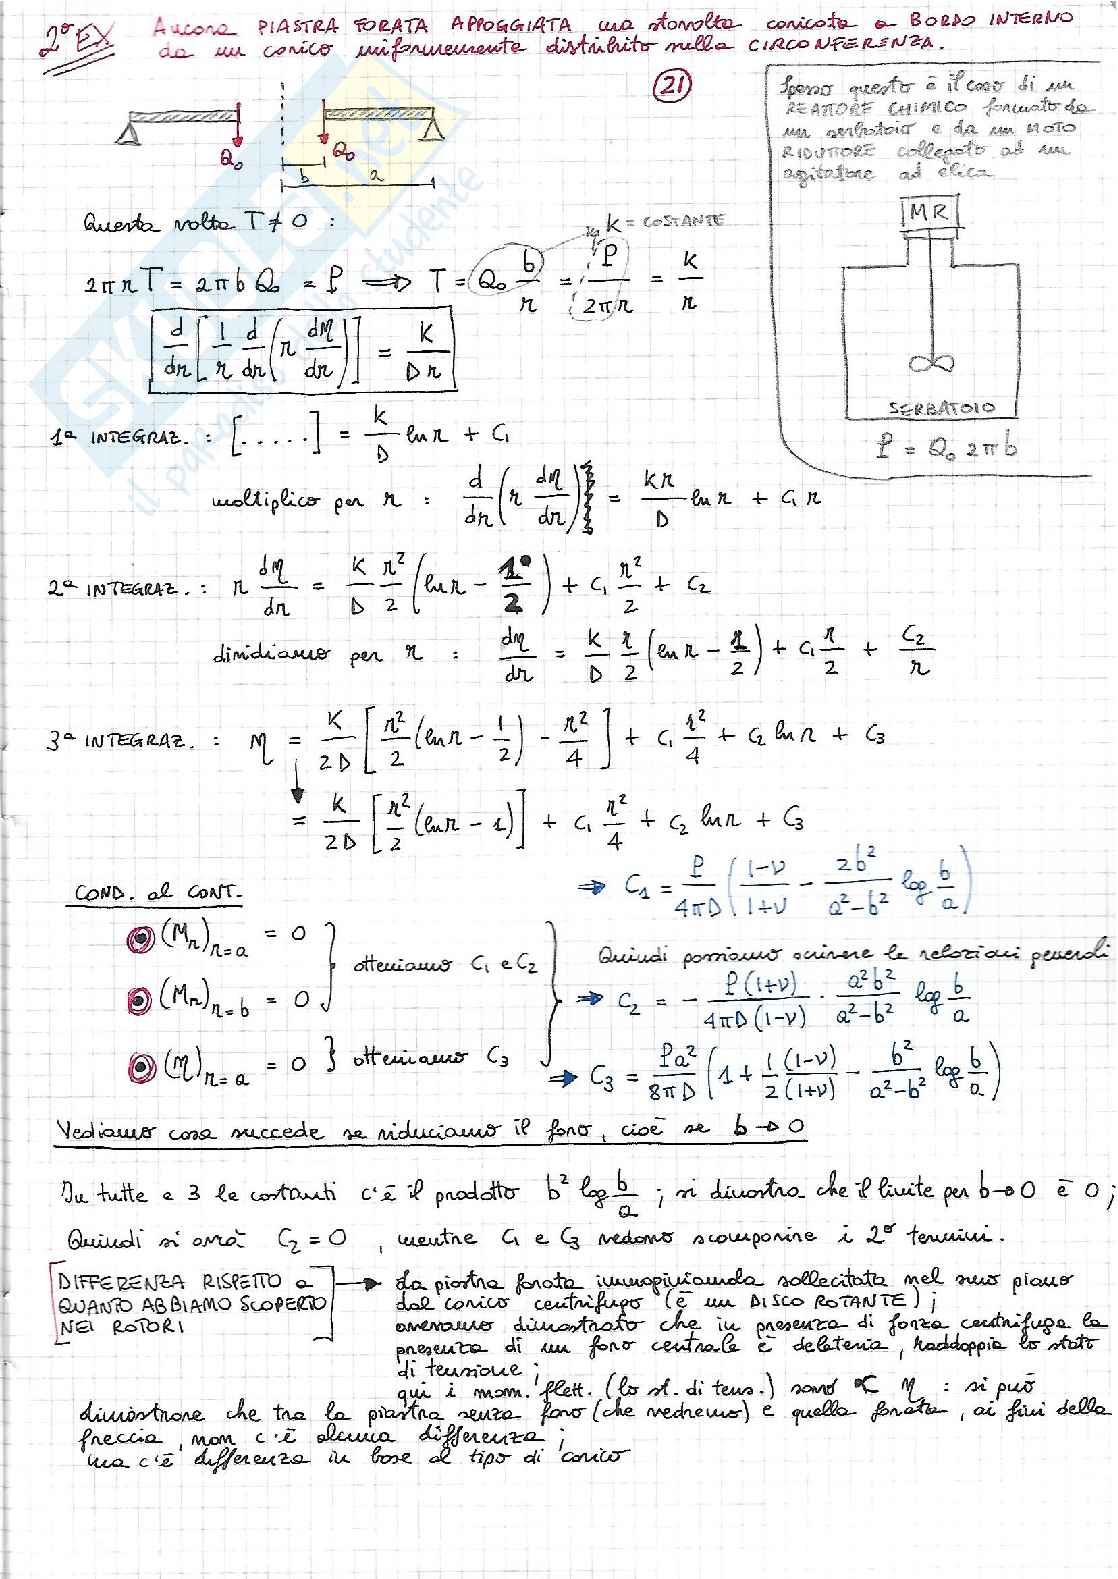 2° EX Ancora PIASTRA FORATA APPOGGIATA ma stavolta caricata a BORDO INTERNO
da un carico uniformemente distribuito sulla CIRCONFERENZA.
21
Spesso questo è il caso di un
REATTORE CHIMICO formato da
un serbatoio e da un MOTO
RIDUTTORE collegato ad un
agitatore ad elica
MR
SERBATOIO
P = Q₀ 2πb
Q₀ Q₀ b a
Questa volta T ≠ 0 :
K = COSTANTE
2πr T = 2πb Q₀ = P ⟹ T = Q₀ b/r = P/2πr = K/r
d/dr [ 1/r d/dr ( r dη/dr ) ] = K/(D r)
1ª INTEGRAZ. : [.....] = K/D ln r + C₁
moltiplico per r : d/dr ( r dη/dr ) = Kr/D ln r + C₁ r
2ª INTEGRAZ. : r dη/dr = K/D r²/2 ( ln r - 1/2 ) + C₁ r²/2 + C₂
dividiamo per r : dη/dr = K/D r/2 ( ln r - 1/2 ) + C₁ r/2 + C₂/r
3ª INTEGRAZ. : η = K/2D [ r²/2 ( ln r - 1/2 ) - r²/4 ] + C₁ r²/4 + C₂ ln r + C₃
= K/2D [ r²/2 ( ln r - 1 ) ] + C₁ r²/4 + C₂ ln r + C₃
⟹ C₁ = P/4πD ( (1-ν)/(1+ν) - 2b²/(a²-b²) log b/a )
COND. al CONT.
(Mr)r=a = 0
(Mr)r=b = 0
otteniamo C₁ e C₂
(η)r=a = 0 } otteniamo C₃
Quindi possiamo scrivere le relazioni generali
⟹ C₂ = - P(1+ν)/4πD(1-ν) · a²b²/(a²-b²) log b/a
⟹ C₃ = Pa²/8πD ( 1 + 1/2 (1-ν)/(1+ν) - b²/(a²-b²) log b/a )
Vediamo cosa succede se riduciamo il foro, cioè se b → 0
In tutte e 3 le costanti c'è il prodotto b² log b/a ; si dimostra che il limite per b→0 è 0;
Quindi si avrà C₂ = 0 , mentre C₁ e C₃ vedono scomparire i 2° termini.
DIFFERENZA RISPETTO a
QUANTO ABBIAMO SCOPERTO
NEI ROTORI
→ la piastra forata immaginiamola sollecitata nel suo piano
dal carico centrifugo (è un DISCO ROTANTE);
avevamo dimostrato che in presenza di forza centrifuga la
presenza di un foro centrale è deleteria, raddoppia lo stato
di tensione;
qui i mom. flett. (lo st. di tens.) sono ∝ η : si può
dimostrare che tra la piastra senza foro (che vedremo) e quella forata, ai fini della
freccia, non c'è alcuna differenza;
ma c'è differenza in base al tipo di carico